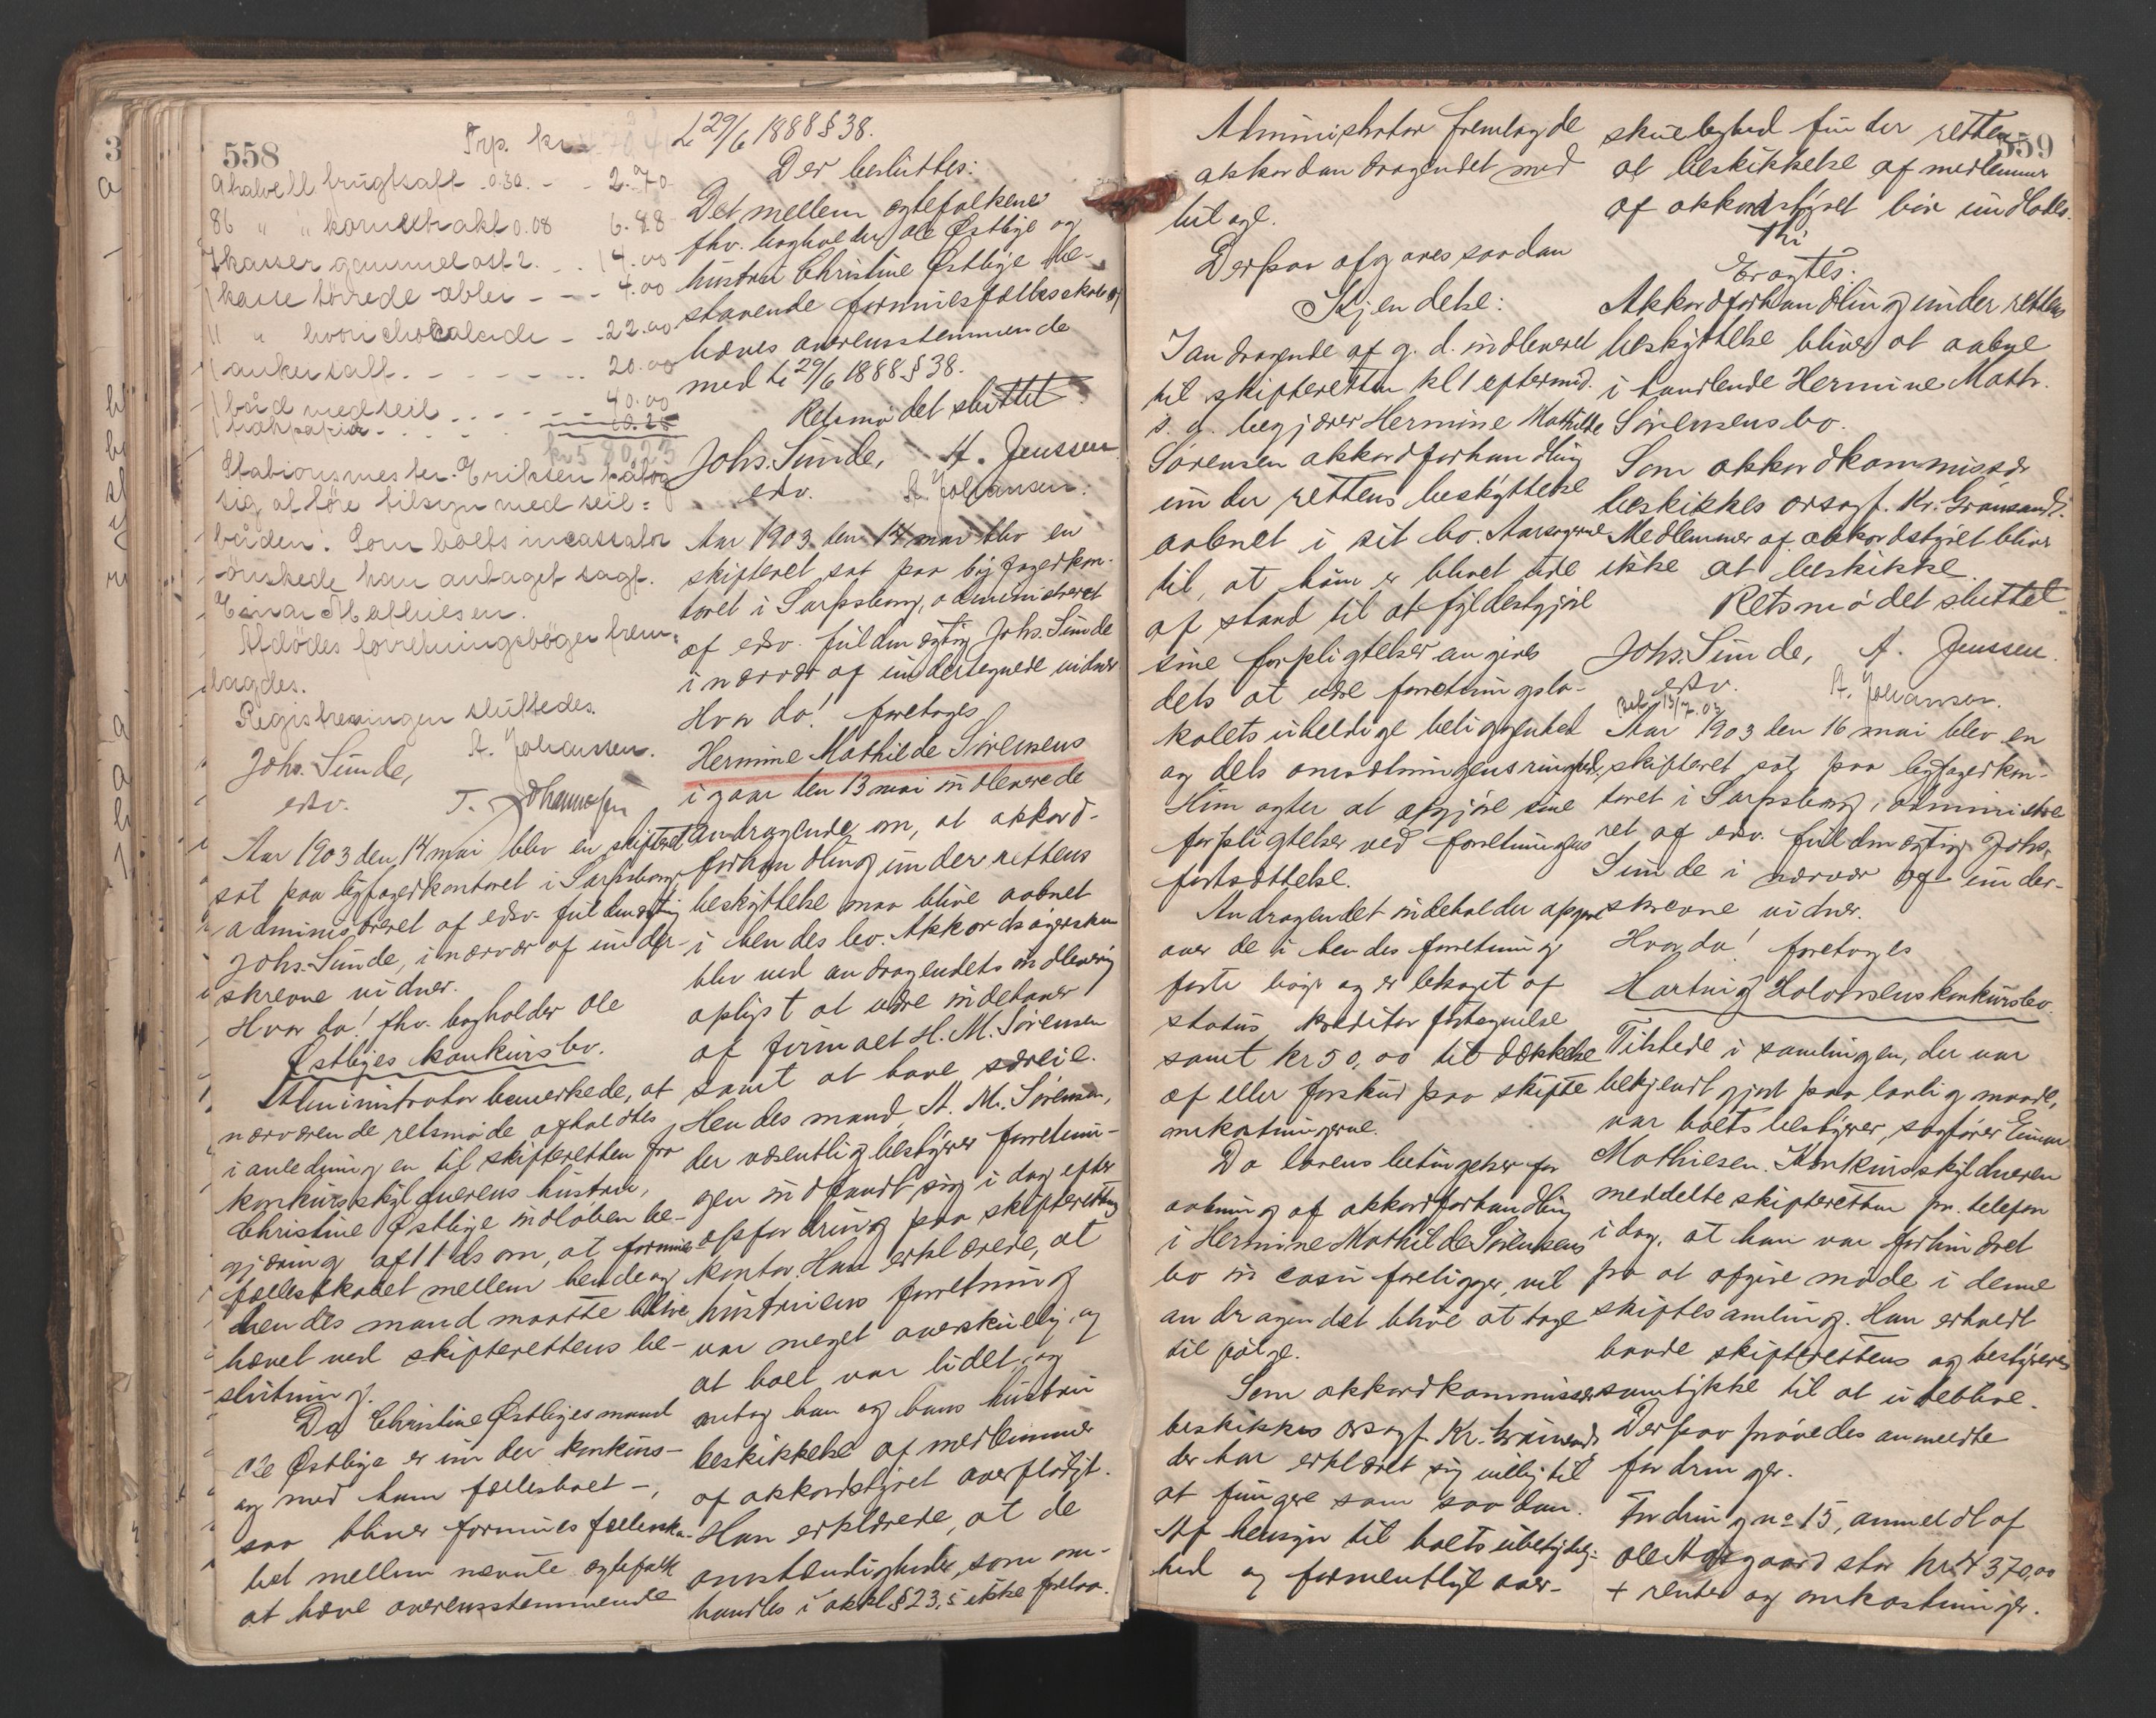 558
Trp. kr.
9 halve ll frugtsaft 0.30 - - 2.70
86 " " kornextrakt 0.08 6.88
7 kasser gammelost 2. - - 14.00
1 kasse törrede æbler - - - 4.00
1 " " chocolade - 22.00
1 anker salt. - - - - - 20.00
1 båd med seil - - - - - 40.00
10.25
Stationsmester Eriksen påtog
sig at före tilsyn med seil=
båden. Som boets incassator
önskede han antaget sagf.
Einar Mathiesen.
Afdödes forretningsböger frem-
lagdes.
Registreringen sluttedes.
Johs. Sunde, A. Johansen.
edsv. T. Johannesen
Aar 1903 den 14 mai blev en skifteret
sat paa byfogedkontoret i Sarpsborg,
administreret af edsv. fuldmægtig
Johs. Sunde, i nærvær af under-
skrevne vidner.
Hvor da! fhv. bogholder Ole
Østbyes konkursbo.
Administrator bemerkede, at
nærværende retsmøde afholdtes
i anledning en til skifteretten fra
konkursskyldnerens hustru,
Christine Østbye indløben be-
gjæring af 11 ds om, at formues-
fællesskabet mellem hende og
hendes mand maatte blive
hævet ved skifterettens be-
slutning.
Da Christine Østbyes mand
Ole Østbye er under konkurs -
og med ham fællesboet -,
saa bliver formuesfællesska-
bet mellem nævnte ægtefolk
at hæve overensstemmende
L 29/6 1888 § 38.
Der besluttes:
Det mellem ægtefolkene
fhv. bogholder Ole Østbye og
hustru Christine Østbye be-
staaende formuesfællesskab
hæves overensstemmende
med L 29/6 1888 § 38.
Retsmødet sluttet.
Johs. Sunde, A. Jenssen
edsv. A. Johansen.
Aar 1903 den 14 mai blev en
skifteret sat paa byfogedkon-
toret i Sarpsborg, administreret
af edsv. fuldmægtig Johs. Sunde
i nærvær af undertegnede vidner
Hvor da! foretoges
Hermine Mathilde Sørensens
i gaar den 13 mai indleverede
andragende om, at akkord-
forhandling under rettens
beskyttelse maa blive aabnet
i hendes bo. Akkordsøgersken
blev ved andragendets indlevering
oplyst at være indehaver
af firmaet H. M. Sørensen
samt at have særeie.
Hendes mand, A. M. Sørensen,
der væsentlig bestyrer forretnin-
gen indfandt sig i dag efter
opfordring paa skifterettens
kontor. Han erklærede, at
hustruens forretning
var meget overskuelig, og
at boet var lidet, og
antog han og hans hustru
beskikkelse af medlemmer
af akkordstyret overflødigt.
Han erklærede, at de
omstændigheder, som om-
handles i akkl § 23, 5 ikke forelaa.
559
Administrator fremlagde
akkordandragendet med
bilage.
Derpaa afgaves saadan
Kjendelse:
I andragende af g. d. indleveret
til skifteretten kl 1 eftermid.
s. d. begjærer Hermine Mathilde
Sørensen akkordforhandling
under rettens beskyttelse
aabnet i sit bo. Aarsagerne
til, at hun er blevet ude
af stand til at fyldestgjøre
sine forpligtelser angives
dels at være forretningslo-
kalets uheldige beliggenhed
og dels omsætningens ringhed.
Hun agter at opgjøre sine
forpligtelser ved forretningens
fortsættelse.
Andragendet indeholder opgave
over de i hendes forretning
førte bøger og er ledsaget af
status, kreditorfortegnelse
samt kr 50,00 til dækkelse
af eller forskud paa skifte
omkostningerne.
Da lovens betingelser for
aabning af akkordforhandling
i Hermine Mathilde Sørensens
bo in casu foreligger, vil
andragendet blive at tage
til følge.
Som akkordkommissær
beskikkes orsagf. Kr. Grønsand,
der har erklæret sig villig til
at fungere som saadan.
Af hensyn til boets ubetydelig-
hed og formentlige over-
skuelighed finder retten
at beskikkelse af medlemmer
af akkordstyret bør undlades.
Thi
Eragtes:
Akkordforhandling under rettens
beskyttelse bliver at aabne
i handlende Hermine Math.
Sørensens bo.
Som akkordkommissær
beskikkes orsagf. Kr. Grønsand.
Medlemmer af akkordstyret bliver
ikke at beskikke.
Retsmødet sluttet.
Johs. Sunde, A. Jenssen.
edsv. A. Johansen.
Bet. 13/7.03
Aar 1903 den 16 mai blev en
skifteret sat paa byfogedkon-
toret i Sarpsborg, administre
ret af edsv. fuldmægtig Johs.
Sunde i nærvær af under-
skrevne vidner.
Hvor da! foretoges
Hartvig Halvorsens konkursbo.
Tilstede i samlingen, der var
bekjendtgjort paa lovlig maade,
var boets bestyrer, sagfører Einar
Mathiesen. Konkursskyldneren
meddelte skifteretten pr. telefon
i dag, at han var forhindret
fra at afgive møde i denne
skiftesamling. Han erholdt
baade skifterettens og bestyrerens
samtykke til at udeblive.
Derpaa prøvedes anmeldte
fordringer.
Fordring no 15, anmeldt af
Ole Aasgaard stor kr. 4370,00
+ renter og omkostninger.